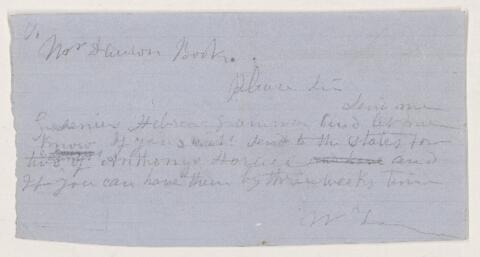 To
Mr Dawson Book.
Please Sir
Send me
Hebrew Grammar and let me
Know if you could send to the States for
two of Anthony's Horace and
If you can have them by three weeks time